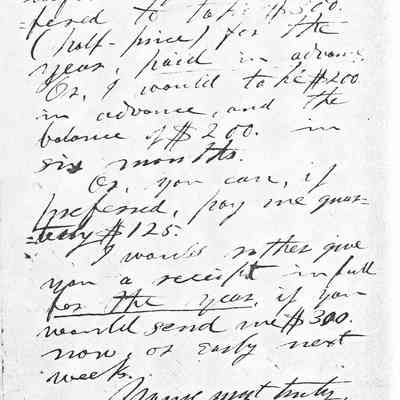 =fered to take $300.
(half-price) for the
year, paid in advance.
Or, I would take $200
in advance, and the
balance of $200. in
six months.
Or, you can, if
preferred, pay me quar=
=terly $125.
I would rather give
you a receipt in full
for the year, if you
would send me $300.
now, or early next
week.
Yours most truly,